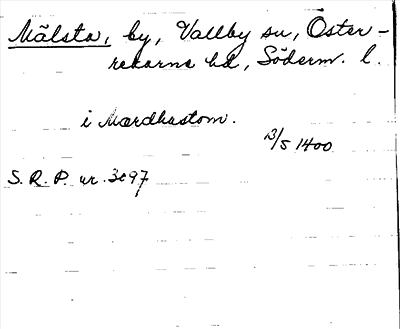 Mälsta, by, Vallby sn, Öster-
rekarne hd, Söderm. l.
i Mædhastom.
13/5 1400
S. R. P. nr. 3097